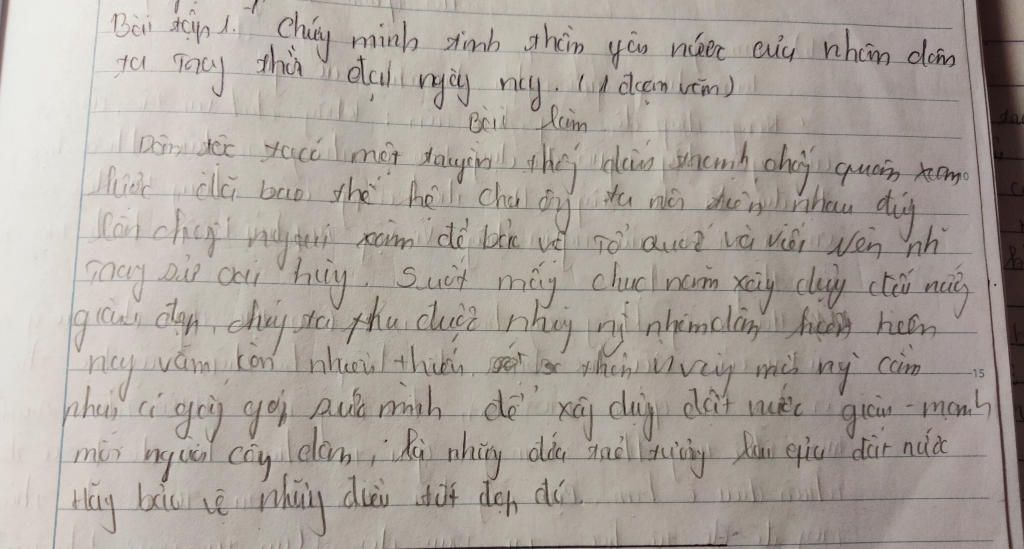 Bài tập 1. Chứng minh tinh thần yêu nước của nhân dân
ta trong thời đại ngày nay. (1 đoạn văn)
Bài làm
Dân tộc ta có một truyền thống đấu tranh chống quân xâm
lược đã bao thế hệ cha ông ta nối tiếp nhau đứng
lên chống người xâm để bảo vệ Tổ quốc và viết nên
trang sử hùng. Suốt mấy chục năm xây dựng đất nước
giàu đẹp, chúng ta thu được nhưng nhân dân hiện
nay vẫn còn nhiều thiếu thốn Vì vậy mỗi người cần
phải cố gắng sức mình để xây dựng đất nước giàu - mạnh
mỗi người công dân, là những đứa trẻ tương lai của đất nước
Hãy bảo vệ những điều tốt đẹp đó.
15